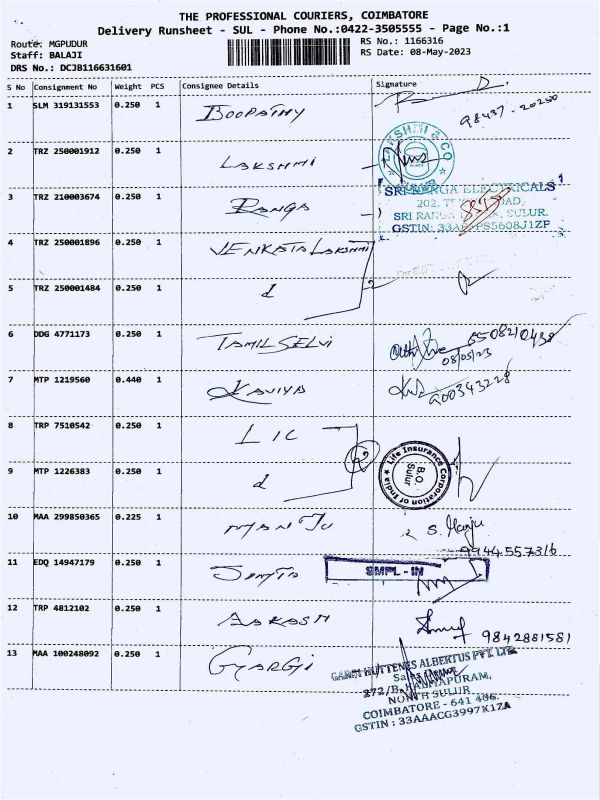 THE PROFESSIONAL COURIERS, COIMBATORE
Delivery Runsheet - SUL - Phone No.:0422-3505555 - Page No.:1
Route: MGPUDUR
RS No.: 1166316
Staff: BALAJI
RS Date: 08-May-2023
DRS No.: DCJB116631601
S No Consignment No Weight PCS Consignee Details Signature
1 SLM 319131553 0.250 1 BOOPATHY
98437-20200
2 TRZ 250001912 0.250 1 LAKSHMI
LAKSHMI & CO
3 TRZ 210003674 0.250 1 RANGA
SRI RANGA ELECTRICALS
202,
SRI RANGA SULUR.
GSTIN:
4 TRZ 250001896 0.250 1 VENKATA LAKSHMI
5 TRZ 250001484 0.250 1 d
2
6 DDG 4771173 0.250 1 TAMIL SELVI
6508210438
08/05/23
7 MTP 1219560 0.440 1 KAVIYA
8 TRP 7510542 0.250 1 LIC
2
9 MTP 1226383 0.250 1 d
Life Insurance Corporation of India
B.O.
Sulur
10 MAA 299850365 0.225 1 MANJU
S. Manju
9944557316
11 EDQ 14947179 0.250 1
SMPL - IN
12 TRP 4812102 0.250 1 AAKASH
9842881581
13 MAA 100248092 0.250 1
HUTTENES ALBERTUS PVT. LTD
272/B, KASIYAPURAM,
NORTH SULUR,
COIMBATORE - 641 406.
GSTIN : 33AAACG3997K1ZA